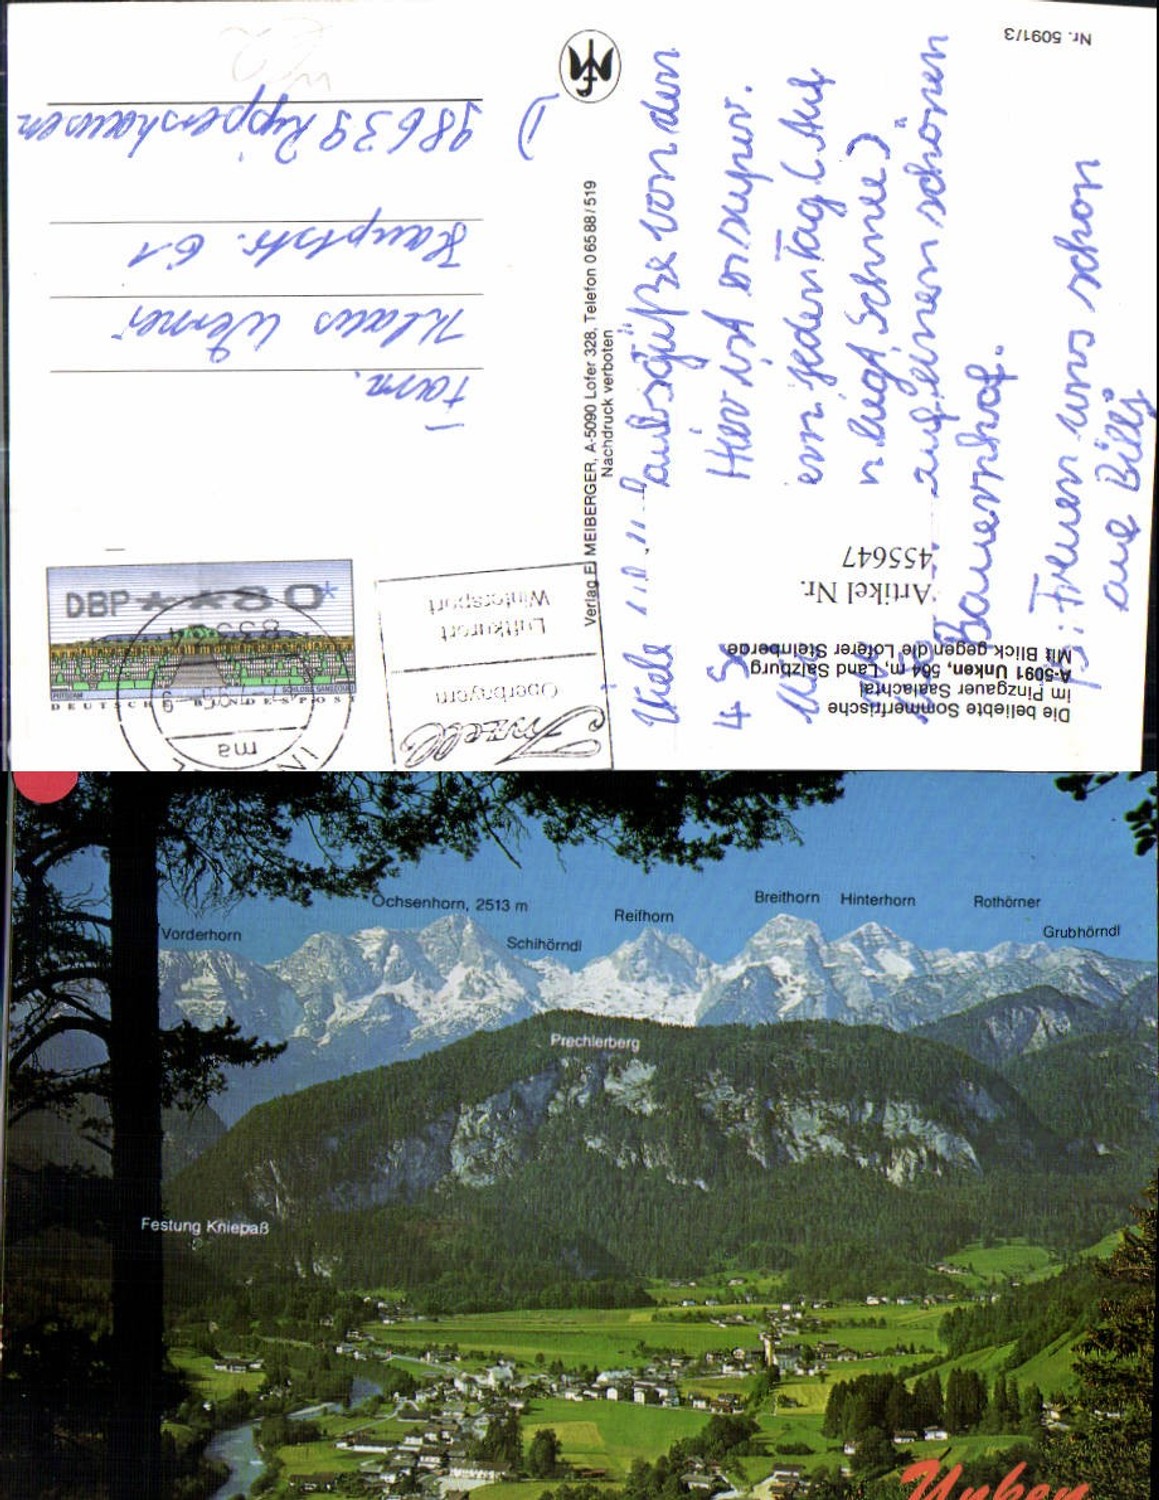 Die beliebte Sommerfrische
im Pinzgauer Saalachtal
A-5091 Unken, 564 m, Land Salzburg
Mit Blick gegen die Loferer Steinberge
Artikel Nr.
455647
Nr. 5091/3
Verlag F. MEIBERGER, A-5090 Lofer 328, Telefon 06588/519
Nachdruck verboten
Viele
von den
Hier ist
jeden Tag (Auf
liegt Schnee)
auf einem schönen
Bauernhof.
Freuen uns schon
Inzell
Oberbayern
Luftkurort
Wintersport
DBP **80*
POTSDAM
SCHLOSS SANSSOUCI
DEUTSCHE BUNDESPOST
ma
Fam.
Klaus Werner
Hauptstr. 61
98639 Rippershausen
D
Ochsenhorn, 2513 m
Breithorn
Hinterhorn
Rothörner
Reifhorn
Vorderhorn
Schihörndl
Grubhörndl
Prechlerberg
Festung Kniepaß
Unken